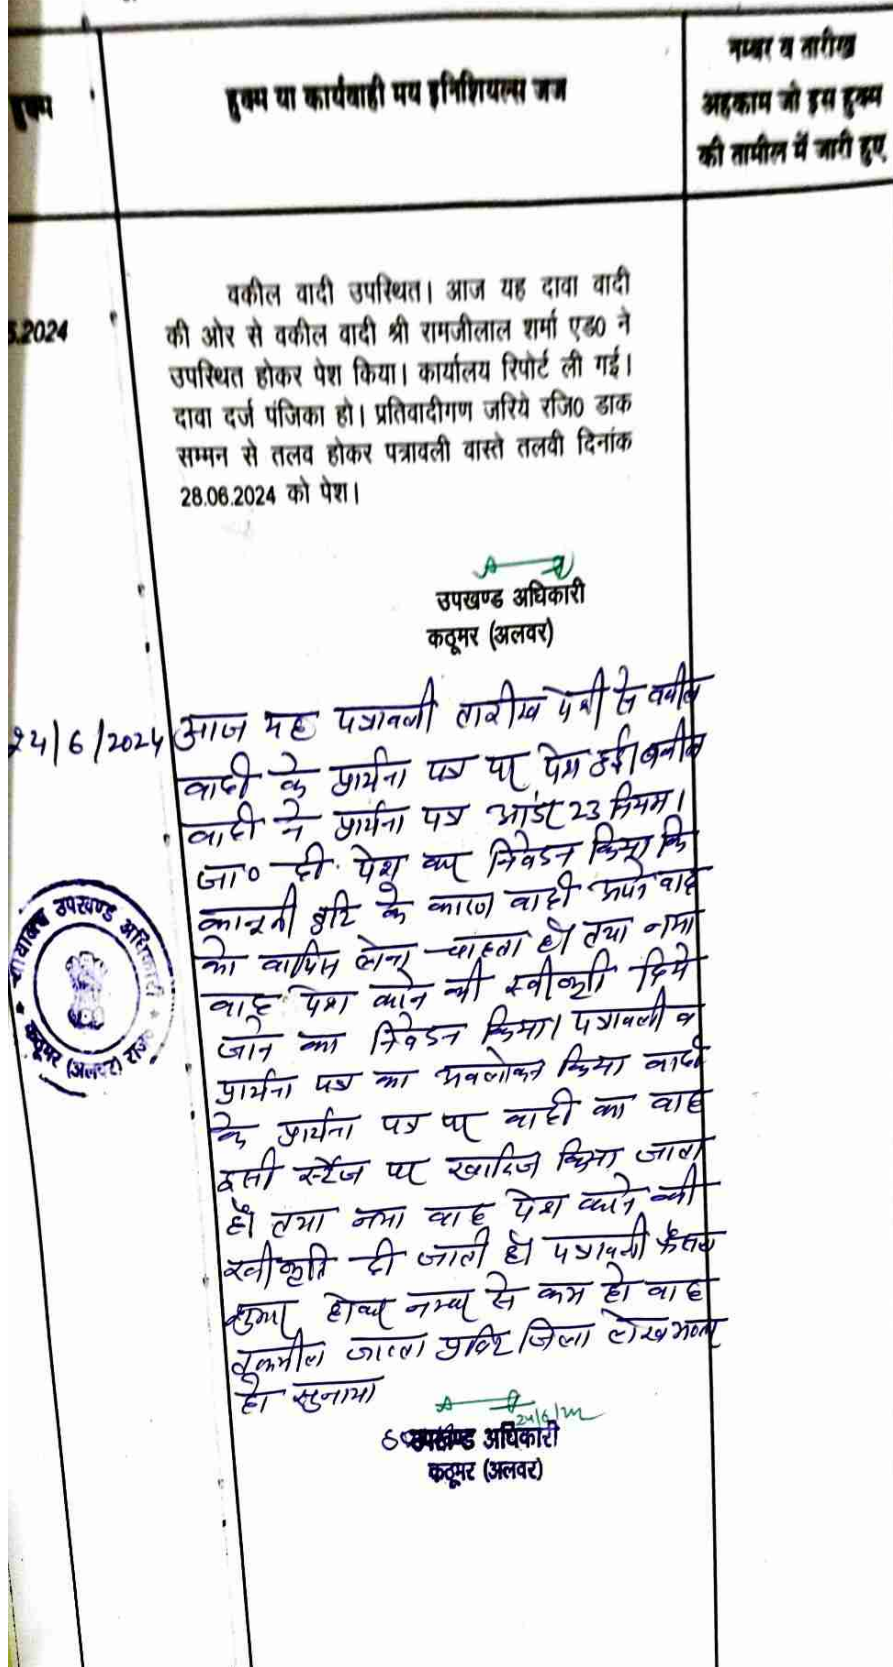 हुक्म
हुक्म या कार्यवाही मय इनिशियल्स जज
नम्बर व तारीख
अहकाम जो इस हुक्म
की तामील में जारी हुए
.2024
वकील वादी उपस्थित। आज यह दावा वादी
की ओर से वकील वादी श्री रामजीलाल शर्मा एड0 ने
उपस्थित होकर पेश किया। कार्यालय रिपोर्ट ली गई।
दावा दर्ज पंजिका हो। प्रतिवादीगण जरिये रजि0 डाक
सम्मन से तलव होकर पत्रावली वास्ते तलवी दिनांक
28.06.2024 को पेश।
उपखण्ड अधिकारी
कठूमर (अलवर)
24/6/2024
आज यह पत्रावली तारीख पेशी से वकील
वादी के प्रार्थना पत्र पर पेश हुई। वकील
वादी ने प्रार्थना पत्र आर्डर 23 नियम 1
जा० दी. पेश कर निवेदन किया कि
कानूनी त्रुटि के कारण वादी अपने वाद
को वापिस लेना चाहता है। तथा नया
वाद पेश करने की स्वीकृति दिये
जाने का निवेदन किया। पत्रावली व
प्रार्थना पत्र का अवलोकन किया वादी
के प्रार्थना पत्र पर वादी का वाद
इसी स्टेज पर खारिज किया जाता
है। तथा नया वाद पेश करने की
स्वीकृति दी जाती है। पत्रावली फैसल
शुमार होकर नम्बर से कम हो वाद
तकमील जाप्ता दाखिल
हो। सुनाया
24/6/24
उपखण्ड अधिकारी
कठूमर (अलवर)
न्यायालय उपखण्ड अधिकारी
कठूमर (अलवर) राज०